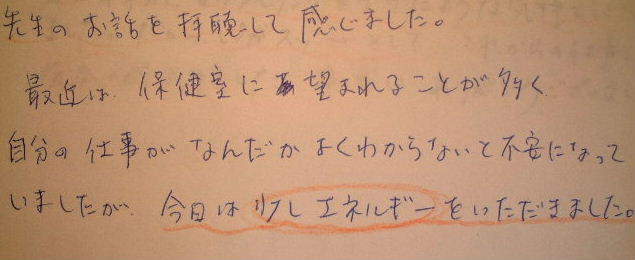 先生のお話を拝聴して感じました。
最近は、保健室に望まれることが多く
自分の仕事がなんだかよくわからないと不安になって
いましたが、今日は少しエネルギーをいただきました。